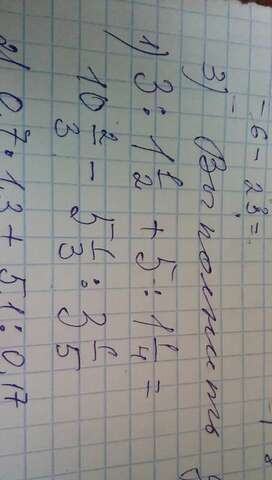 = 6 - 2 3/8 =
3) Выполнить
1) 3 : 1 1/2 + 5 : 1 1/4 =
10 2/3 - 5 1/3 : 3 1/5
2) 0,7 · 1,3 + 5,1 : 0,17